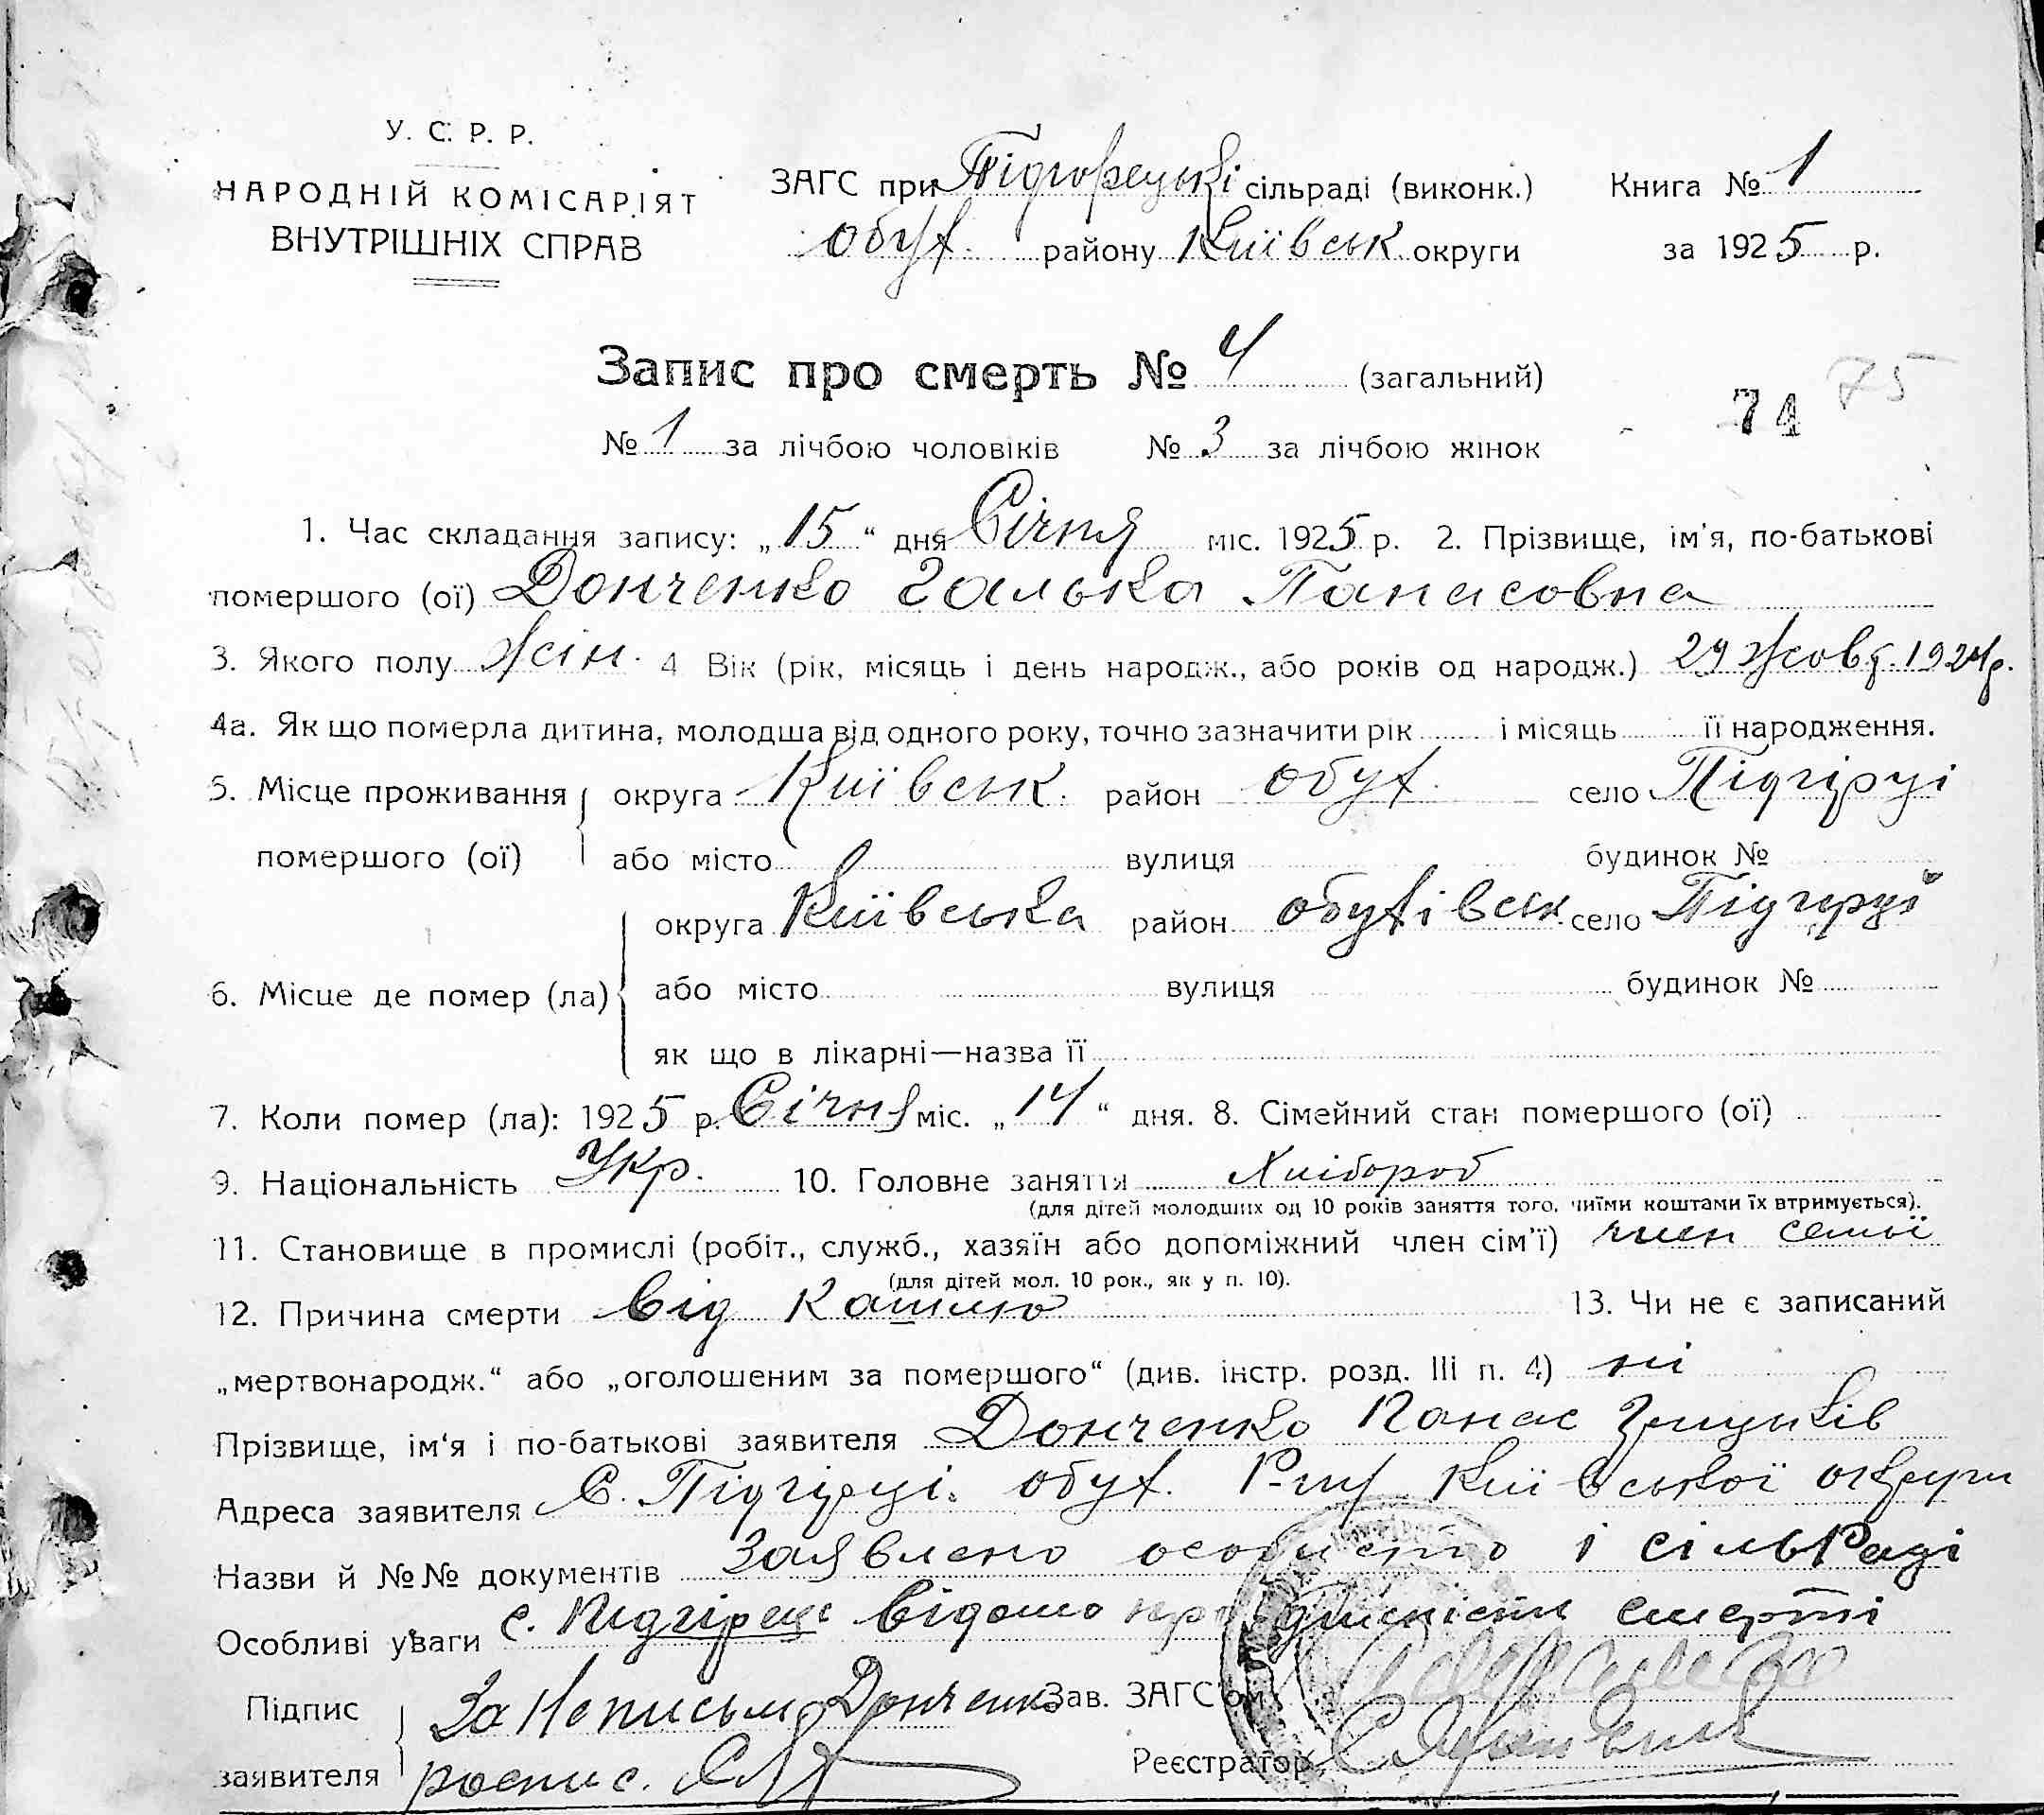 У. С. Р. Р.
НАРОДНІЙ КОМІСАРІЯТ
ВНУТРІШНІХ СПРАВ
ЗАГС при Підгорецькі сільраді (виконк.) Книга № 1
обух. району Київськ округи за 1925 р.
Запис про смерть № 4 (загальний)
74 75
№ 1 за лічбою чоловіків № 3 за лічбою жінок
1. Час складання запису: „15“ дня Січня міс. 1925 р. 2. Прізвище, ім'я, по-батькові
помершого (ої) Донченко Галька Панасовна
3. Якого полу жін. 4 Вік (рік, місяць і день народж., або років од народж.) 29 жовт. 1924 р.
4а. Як що померла дитина, молодша від одного року, точно зазначити рік і місяць її народження.
5. Місце проживання помершого (ої) округа Київськ. район обух. село Підгірці
або місто вулиця будинок №
6. Місце де помер (ла) округа Київська район обухівськ. село Підгірці
або місто вулиця будинок №
як що в лікарні—назва її
7. Коли помер (ла): 1925 р. Січня міс. „14“ дня. 8. Сімейний стан помершого (ої)
9. Національність Укр. 10. Головне заняття Хлібороб
(для дітей молодших од 10 років заняття того, чиїми коштами їх втримується).
11. Становище в промислі (робіт., служб., хазяїн або допоміжний член сім'ї) член семьї
(для дітей мол. 10 рок., як у п. 10).
12. Причина смерти від кашлю 13. Чи не є записаний
„мертвонародж.“ або „оголошеним за помершого“ (див. інстр. розд. III п. 4) ні
Прізвище, ім'я і по-батькові заявителя Донченко Панас Грицьків
Адреса заявителя С. Підгірці обух. Р-ну Київської округи
Назви й №№ документів Заявлено особисто і сільРаді
Особливі уваги с. Підгірець відомо про дійсність смерти
Підпис заявителя За Неписьм Донченко Зав. ЗАГС'ом
роспис. Реєстратор